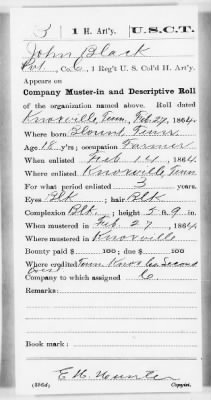 B | 1 H. Art'y. | U.S.C.T.
John Black
Pvt., Co. C, 1 Reg't U.S. Col'd H. Art'y.
Appears on
Company Muster-in and Descriptive Roll
of the organization named above. Roll dated
Knoxville, Tenn, Feb. 27, 1864.
Where born Blount Tenn
Age 18 y'rs; occupation Farmer
When enlisted Feb 14, 1864.
Where enlisted Knoxville, Tenn
For what period enlisted 3 years.
Eyes Blk; hair Blk
Complexion Blk.; height 5 ft. 9 in.
When mustered in Feb 27, 1864.
Where mustered in Knoxville
Bounty paid $ 100; due $ 100
Where credited Tenn Knox Co. Second
Dist
Company to which assigned C
Remarks:
Book mark:
E. H. Hunter
(356d) Copyist.